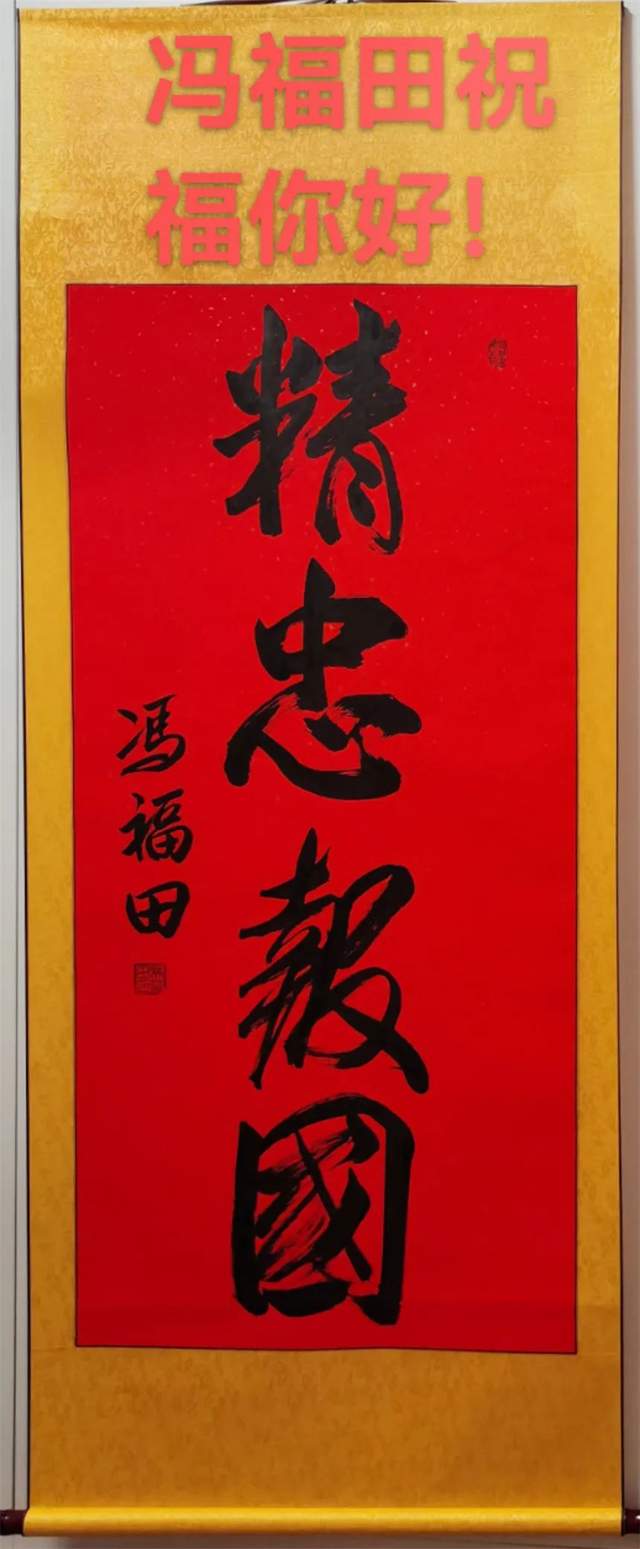 冯福田祝
福你好!
精忠報國
馮福田